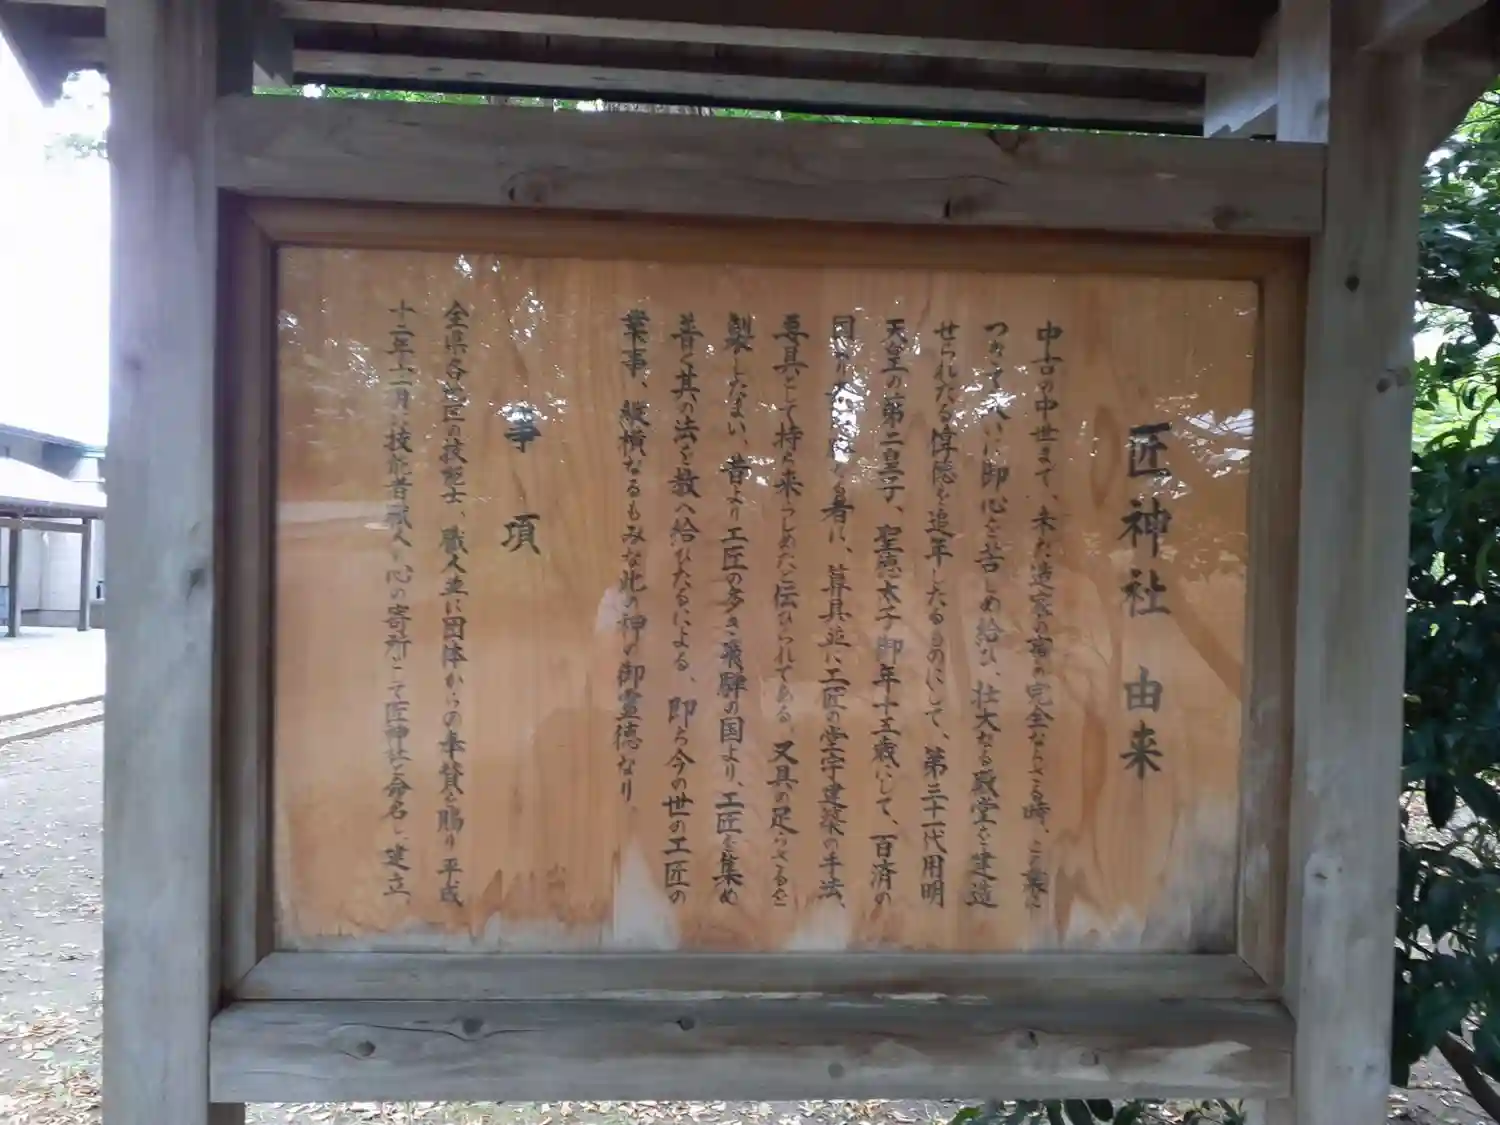 匠神社 由来
中古の中世まで、未だ造家の事の完全ならざる時、この業に
つきて大いに御心を苦しめ給ひ、壮大なる殿堂を建造
せられたる偉徳を追年したるものにして、第三十一代用明
天皇の第二皇子、聖徳太子御年十五歳にして、百済の
国より なる者に、算具並に工匠の堂宇建築の手法、
要具として持ち来らしめたと伝ひられてある。又具の足らざるを
製したまい、昔より工匠の多き飛騨の国より、工匠を集め
普く其の法を教へ給ひたるによる、即ち今の世の工匠の
業事、縦横なるもみな此の神の御霊徳なり。
事項
全県各地匠の技能士、職人並に団体からの奉賛を賜り平成
十二年十一月、技能者職人の心の寄所として匠神社と命名し、建立、